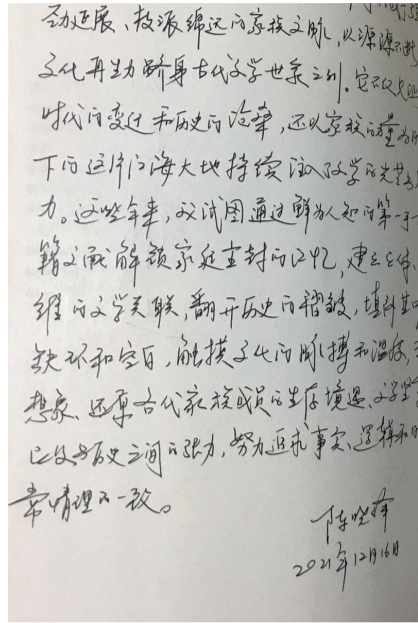 劲延展、枝派绵远的家族文脉,以源源不断
文化再生力跻身古代文学世家之列。它不仅见证
时代的变迁和历史的沧桑,还以家族的力量为
下的这片江海大地持续注入文学的光芒
力。这些年来,我试图通过鲜为人知的第一手
籍文献解锁家族尘封的记忆,建立
维的文学关联,翻开历史的褶皱,填补其中
缺环和空白,触摸文化的脉搏和温度,
想象、还原古代家族成员的生存境遇、文学
以及与历史之间的张力,努力追求事实、逻辑和
常情理的一致。
陈晓峰
2021年12月16日